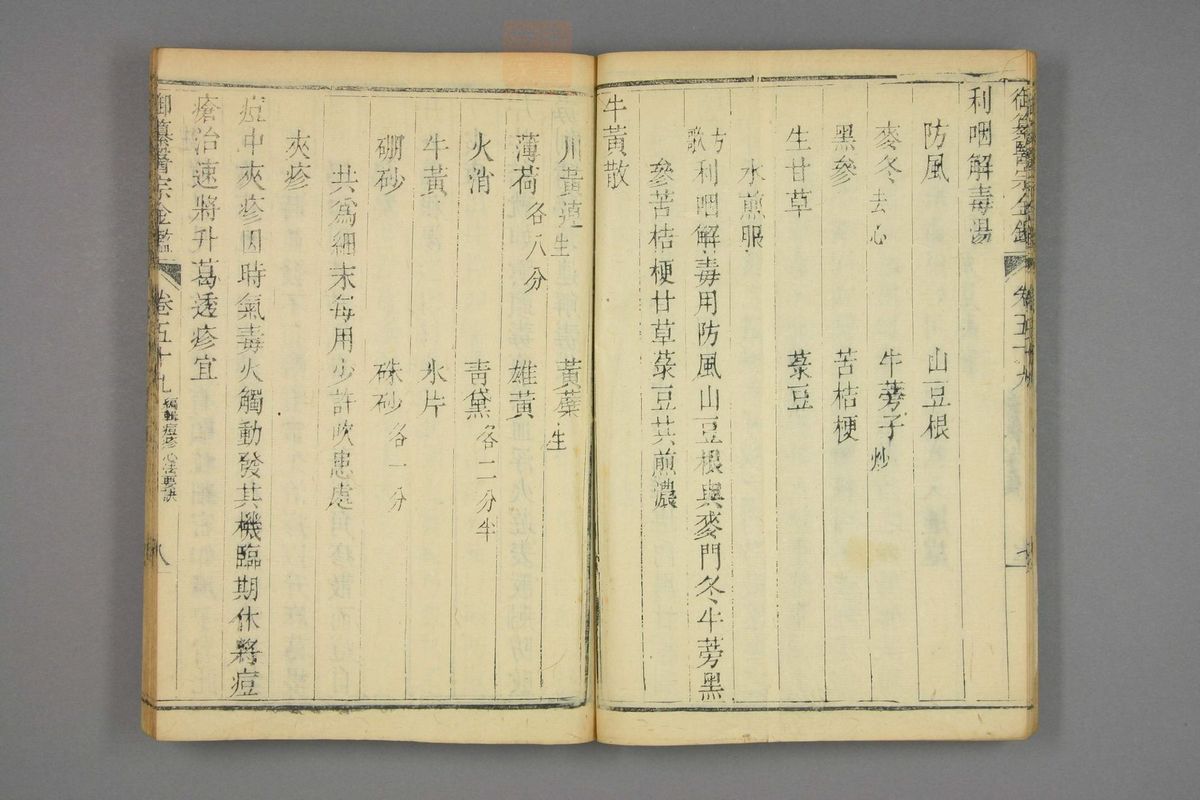 御纂醫宗金鑑 卷五十九
利咽解毒湯
防風 山豆根
麥冬去心 牛蒡子炒
黑參 苦桔梗
生甘草 菉豆
水煎服
方歌 利咽解毒用防風山豆根與麥門冬牛蒡黑
參苦桔梗甘草菉豆共煎濃
牛黃散
川黃連生 黃蘗生
薄荷各八分 雄黃
火消 青黛各二分半
牛黃 氷片
硼砂 硃砂各一分
共爲細末每用少許吹患處
夾疹
痘中夾疹因時氣毒火觸動發其機臨期休將痘
瘡治速將升葛透疹宜
御纂醫宗金鑑 卷五十九 編輯痘疹心法要訣 八